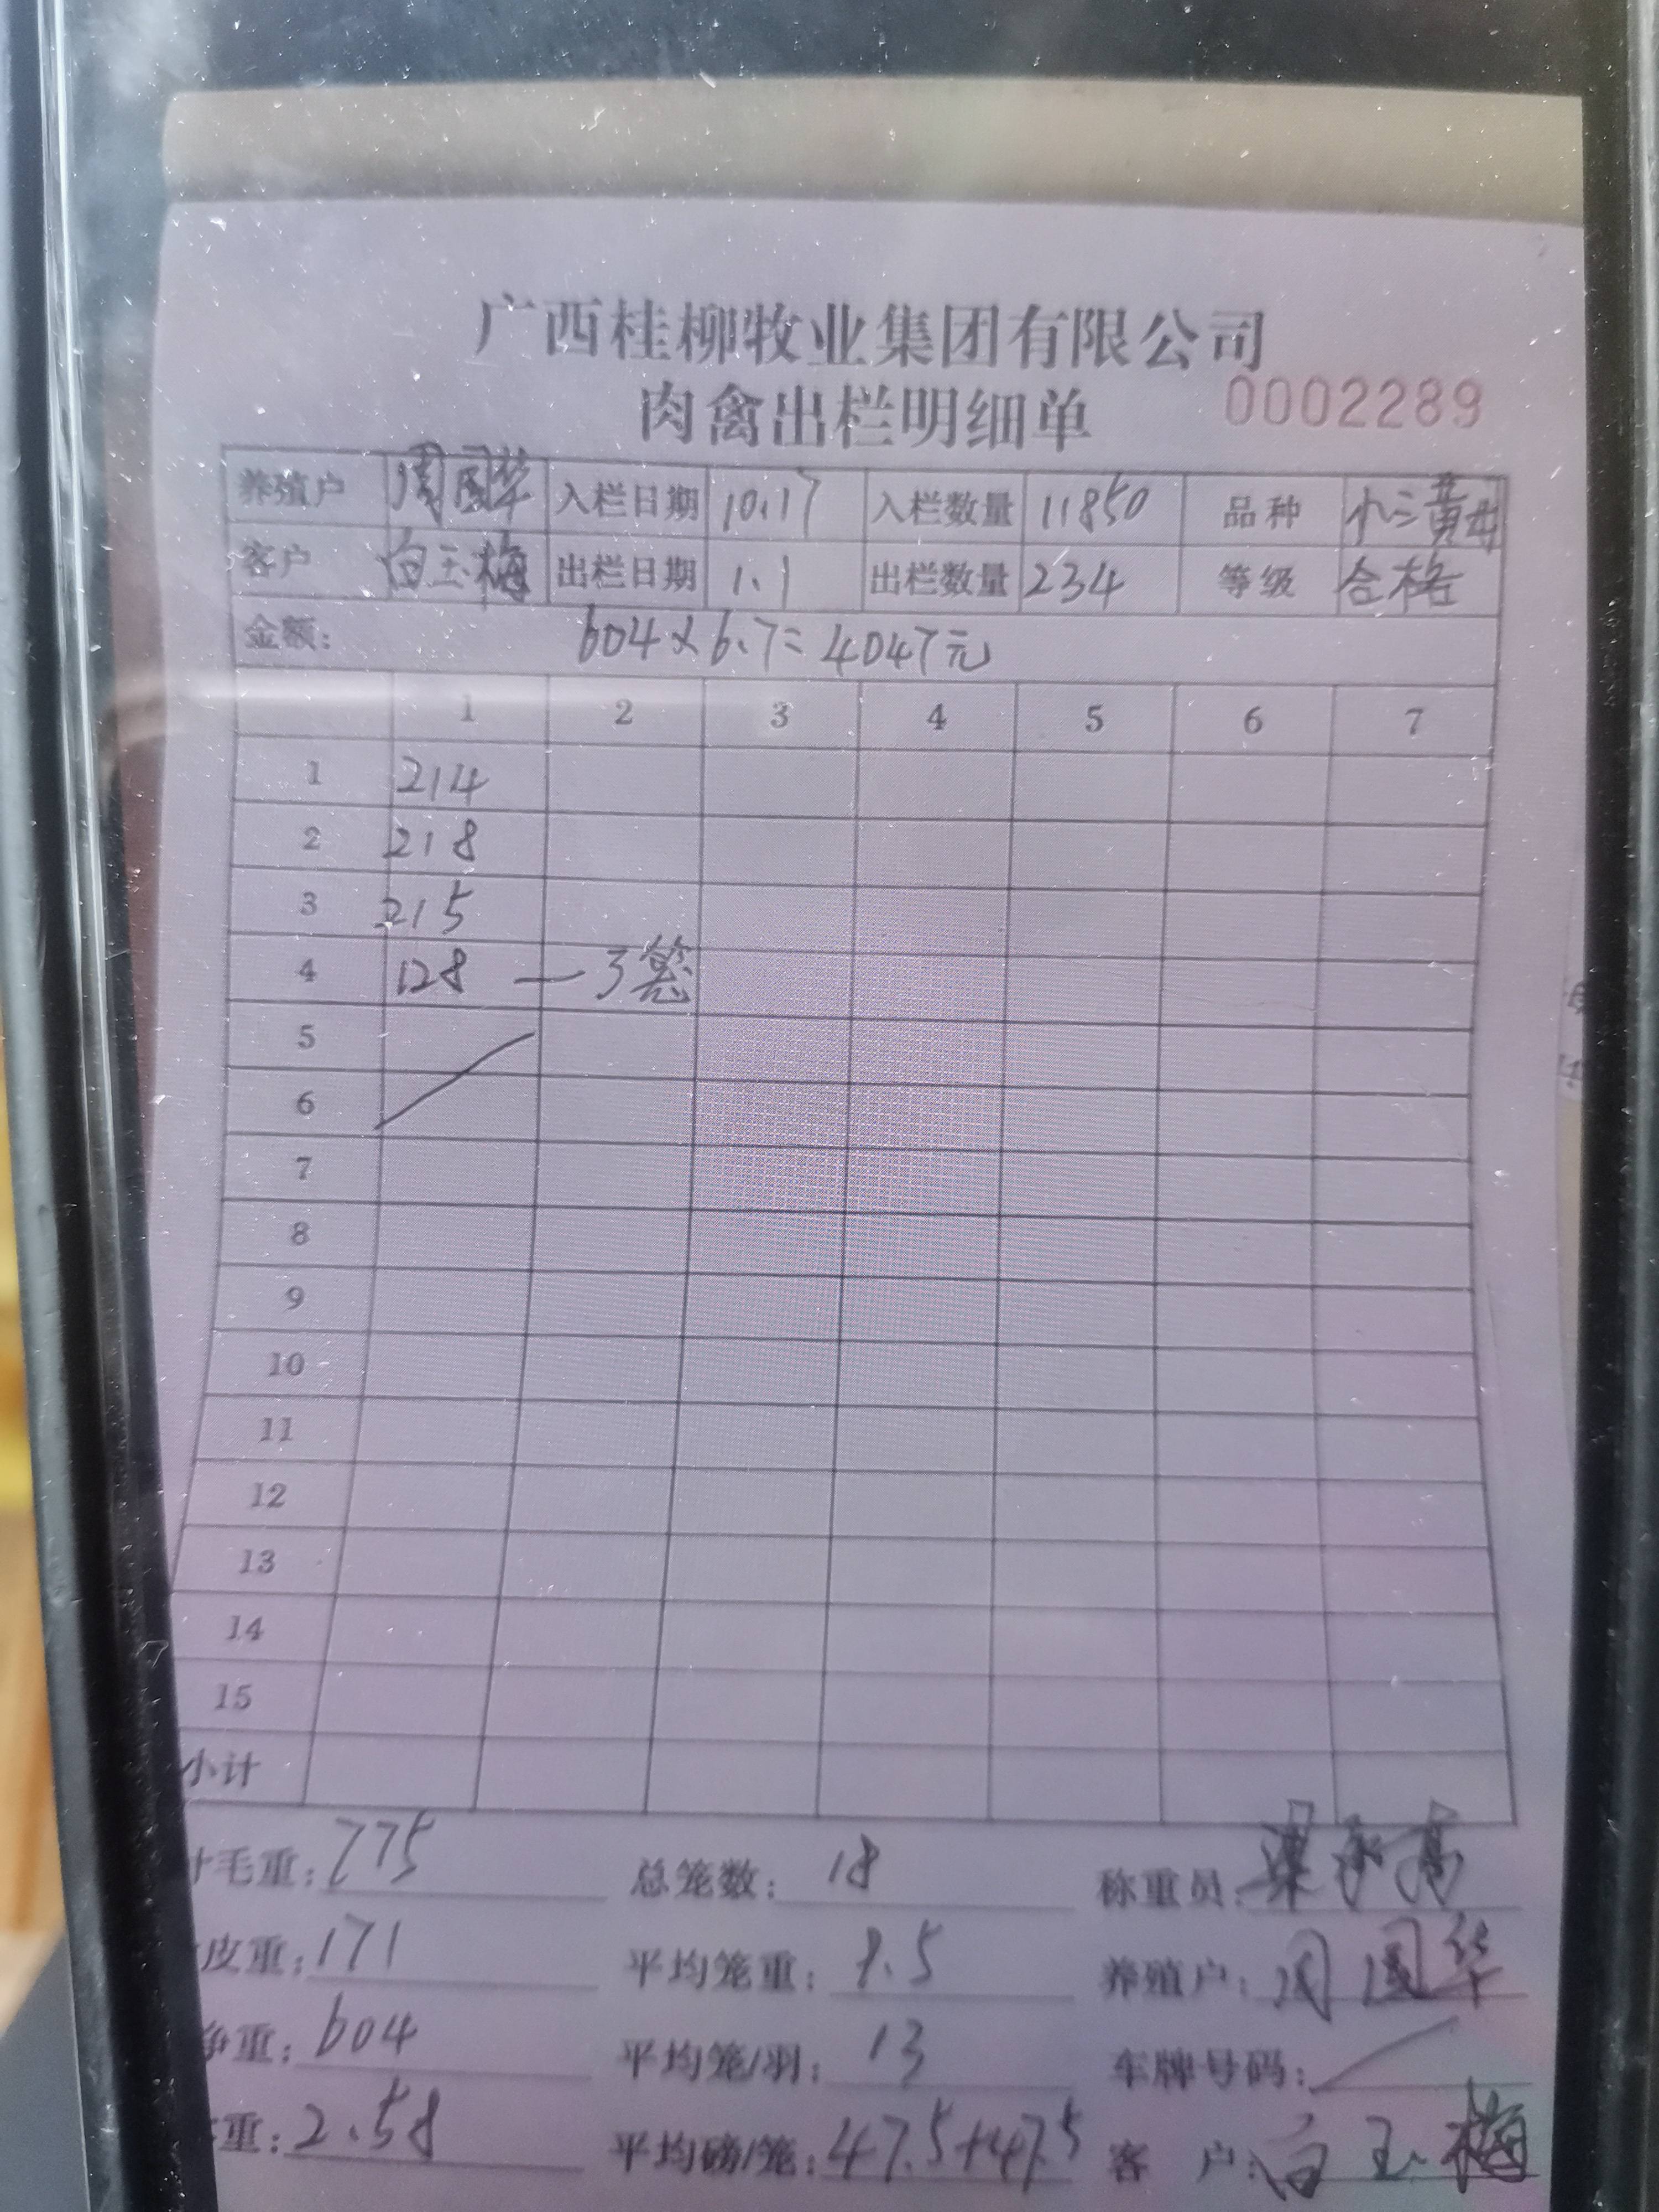 广西桂柳牧业集团有限公司
肉禽出栏明细单 0002289
养殖户 周国华 入栏日期 10.17 入栏数量 11850 品种 小三黄母
客户 白玉梅 出栏日期 1.1 出栏数量 234 等级 合格
金额: 604×6.7=4047元
1 2 3 4 5 6 7
1 214
2 218
3 215
4 128 — 3笼
5
6
7
8
9
10
11
12
13
14
15
小计
计毛重: 775 总笼数: 18 称重员:
皮重: 171 平均笼重: 9.5 养殖户: 周国华
净重: 604 平均笼/羽: 13 车牌号码:
重: 2.58 平均磅/笼: 47.5+47.5 客 户: 白玉梅